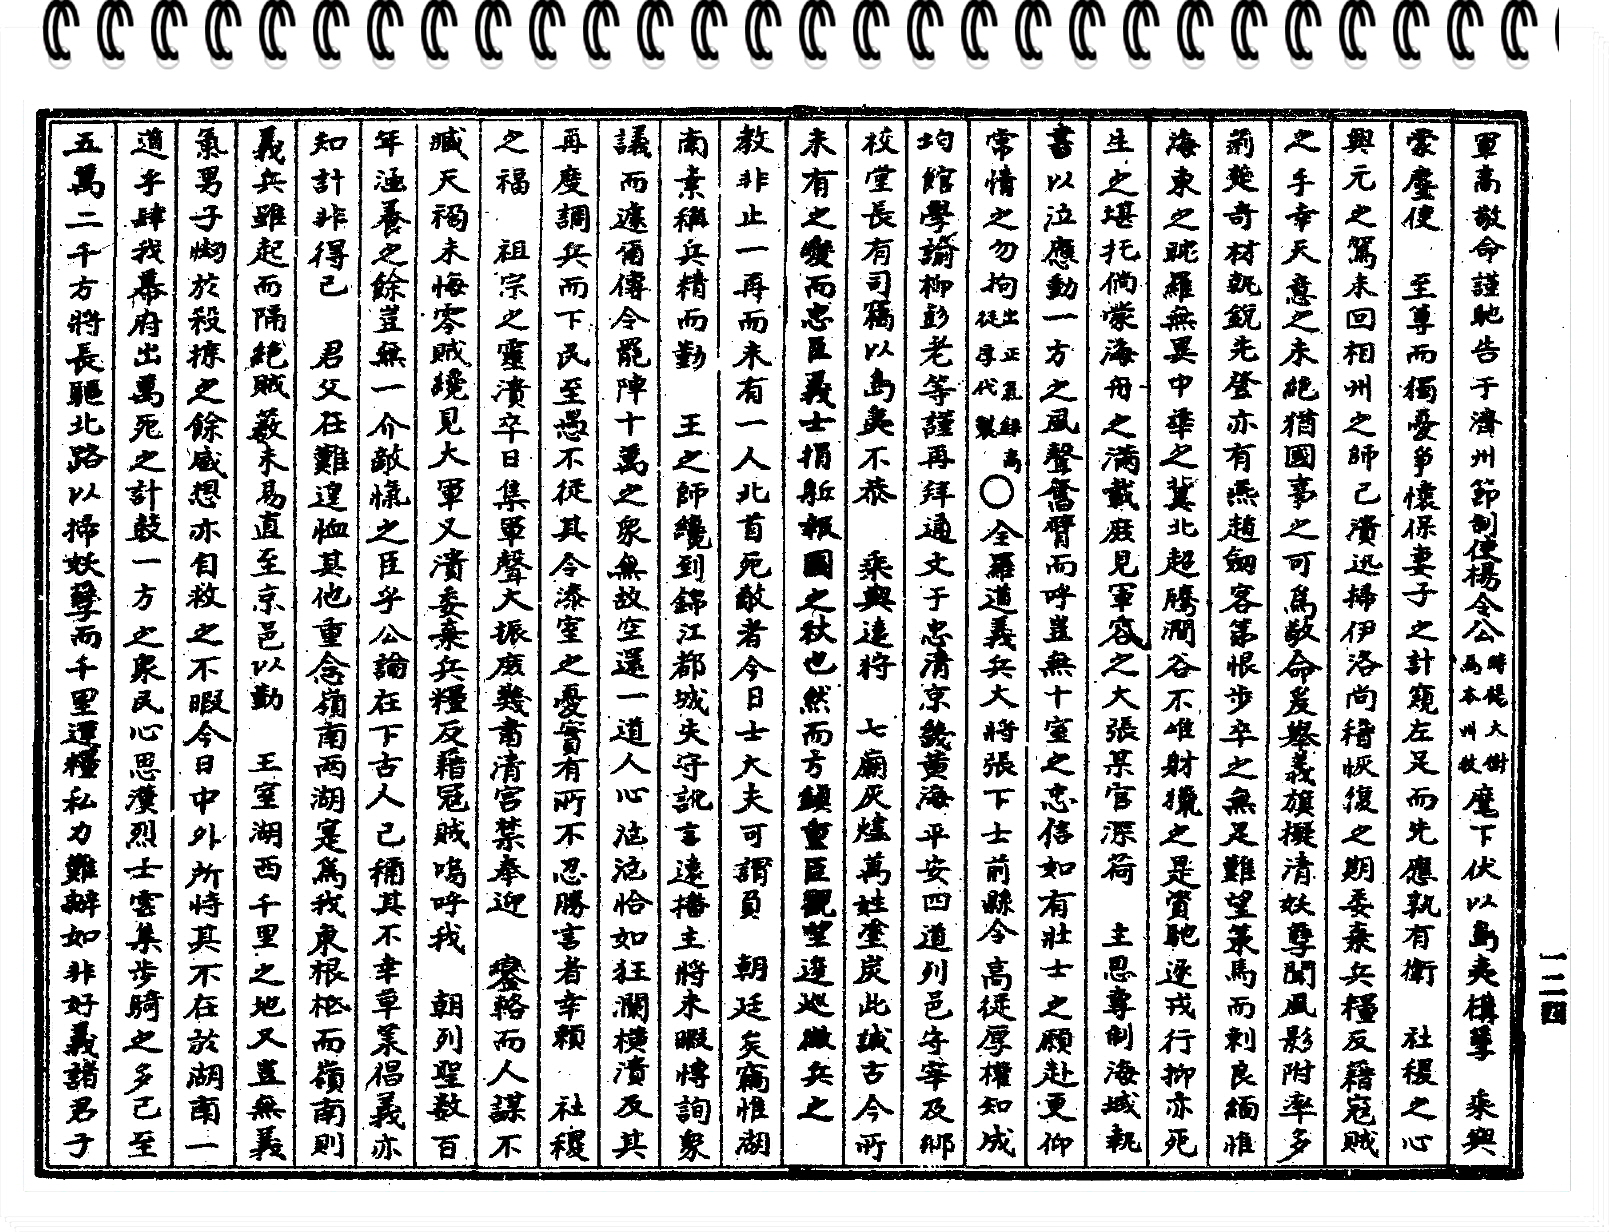 軍高敬命謹馳告于濟州節制使楊令公時楊大樹爲本州牧麾下伏以島夷構孼 乘輿
蒙塵使 至尊而獨憂爭懷保妻子之計窺左足而先應孰有衛 社稷之心
興元之駕未回相州之師已潰迅掃伊洛尚稽恢復之期委棄兵糧反藉寇賊
之手幸天意之未絕猶國事之可爲敬命爰擧義旗擬淸妖孽聞風影附率多
荊楚奇材執銳先登亦有燕趙劒客第恨步卒之無足難望策馬而剌良緬惟
海東之耽羅無異中華之冀北超騰澗谷不唯財獵之是賓馳逐戎行抑亦死
生之堪托倘蒙海舟之滿載庶見軍容之大張某官深荷 主恩專制海城執
書以泣應動一方之風聲奮臂而呼豈無十室之忠信如有壯士之願赴更仰
常情之勿拘出正氣錄高從厚代製○全羅道義兵大將張下士前縣令高從厚權知成
均館學諭柳彭老等謹再拜通文于忠淸京畿黃海平安四道列邑守宰及鄕
校堂長有司竊以島夷不恭 乘輿遠狩 七廟灰燼萬姓塗炭此誠古今所
未有之變而忠臣義士捐軀報國之秋也然而方鎭重臣觀望逡巡徵兵之
敎非止一再而未有一人北首死敵者今日士大夫可謂負 朝廷矣竊惟湖
南素稱兵精而勤 王之師纔到錦江都城失守訛言遠播主將未暇博詢衆
議而遽爾傳令罷陣十萬之衆無故空還一道人心洶洶恰如狂瀾橫潰及其
再度調兵而下民至愚不從其令漆室之憂實有所不忍勝言者幸賴 社稷
之福 祖宗之靈潰卒日集軍聲大振庶幾肅淸宮禁奉迎 鑾輅而人謀不
臧天禍未悔零賊纔見大軍又潰委棄兵糧反藉寇賊嗚呼我 朝列聖數百
年涵養之餘豈無一介敵愾之臣乎公論在下古人已稱其不幸草萊倡義亦
知計非得已 君父在難遑恤其他重念嶺南兩湖寔爲我東根柢而嶺南則
義兵雖起而隔絕賊藪未易直至京邑以勤 王室湖西千里之地又豈無義
氣男子衂於殺掠之餘咸想亦自救之不暇今日中外所恃其不在於湖南一
道乎肆我幕府出萬死之計鼓一方之衆民心思漢烈士雲集步騎之多已至
五萬二千方將長驅北路以掃妖孽而千里運糧私力難辦如非好義諸君子
一二四